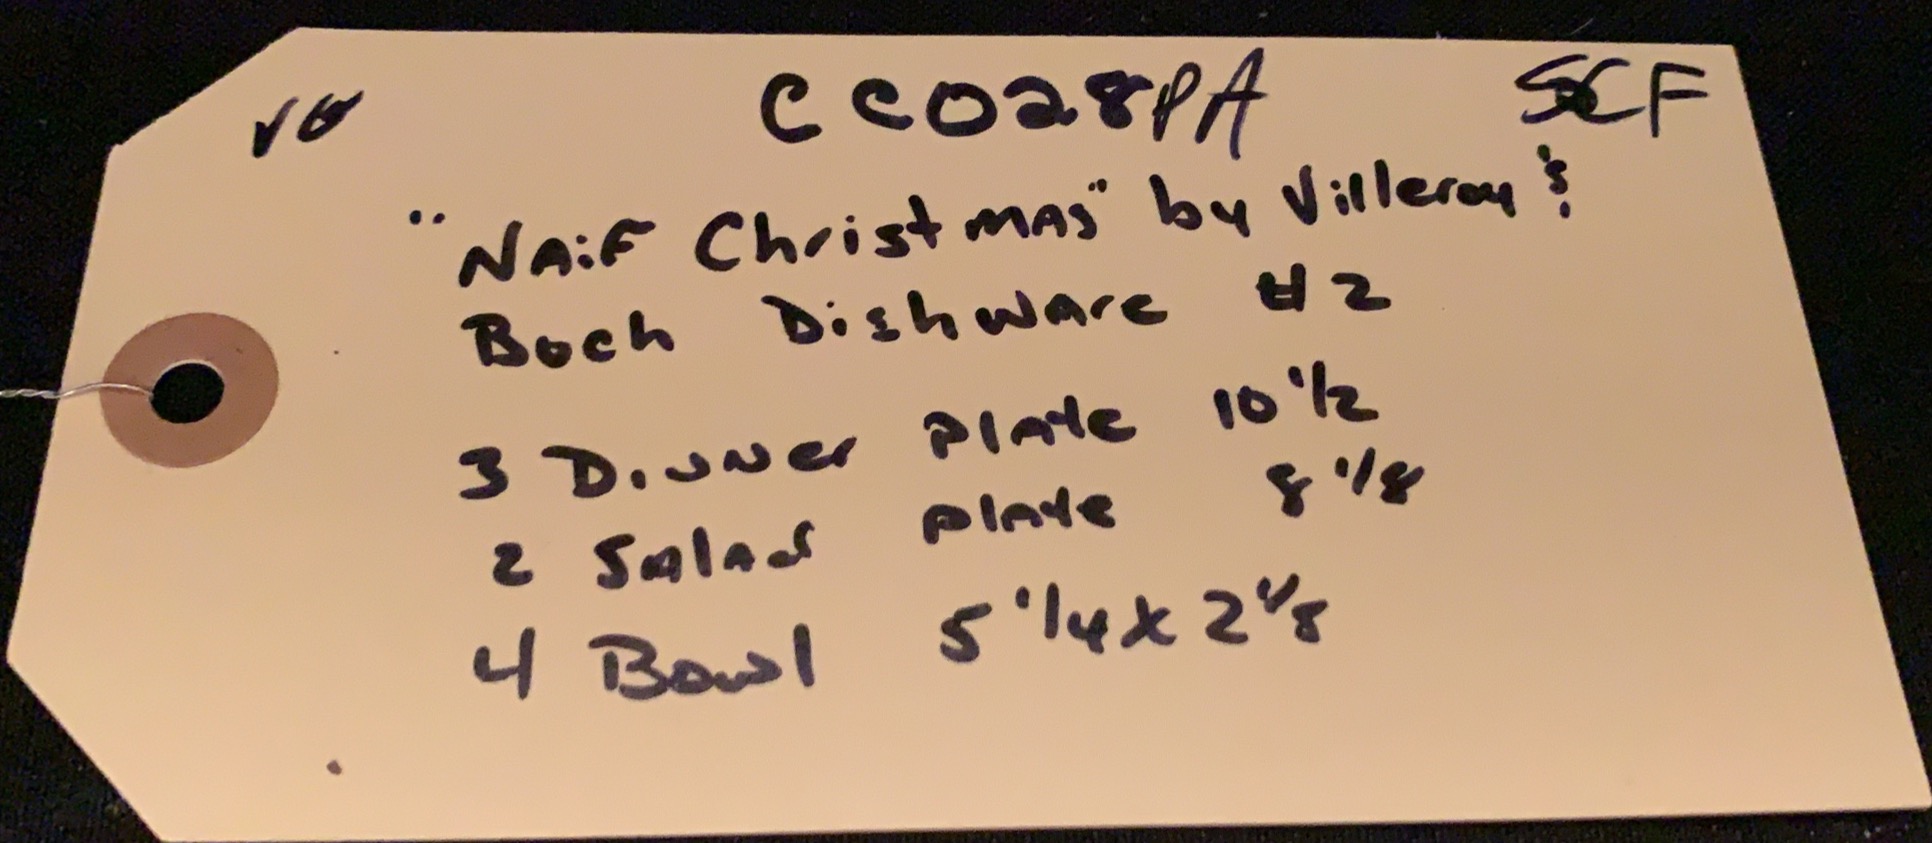 VG CC028PA SCF
"NAiF ChristMAS" by Villeroy &
Boch DishWAre #2
3 DiNNer PlAte 10 1/2
2 SAlAd PlAte 8 1/8
4 Bowl 5 1/4 x 2 1/8